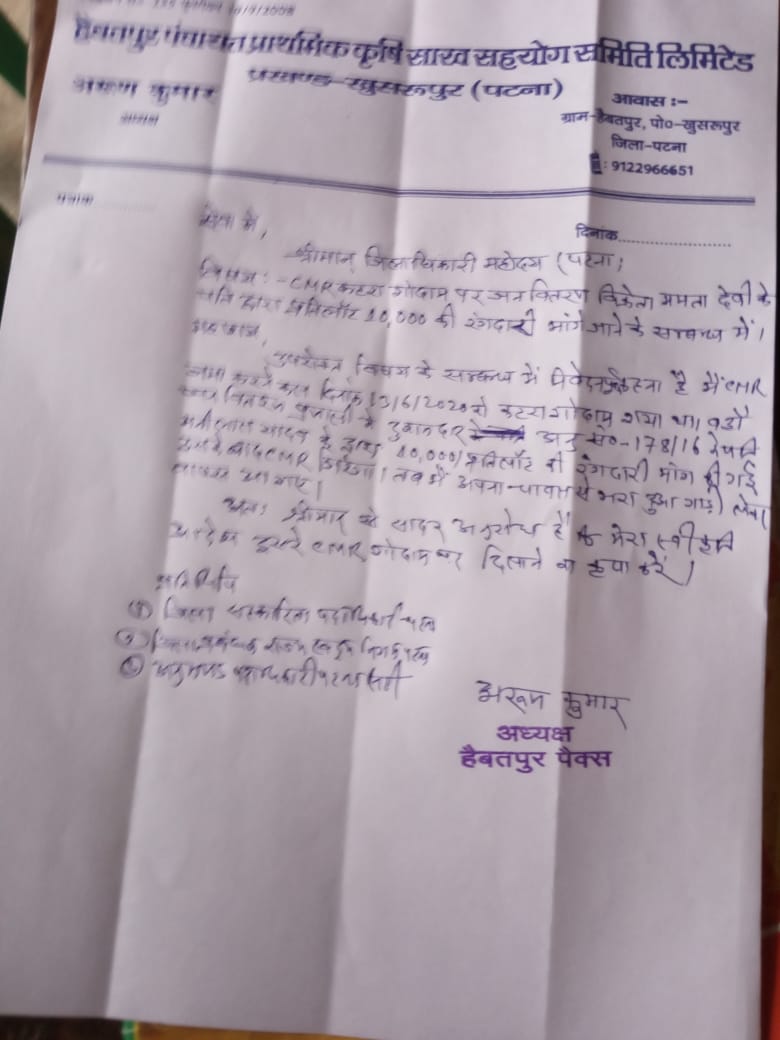 10/9/2008
हैबतपुर पंचायत प्राथमिक कृषि साख सहयोग समिति लिमिटेड
प्रखण्ड-खुसरूपुर (पटना)
अरूण कुमार
अध्यक्ष
आवास :-
ग्राम-हैबतपुर, पो०-खुसरूपुर
जिला-पटना
: 9122966651
पत्रांक
दिनांक
सेवा में,
श्रीमान् जिलाधिकारी महोदय (पटना)
विषय :- CMR कटरा गोदाम पर जन वितरण विक्रेता ममता देवी के
पति द्वारा प्रतिलॉट 10,000 की रंगदारी मांगे जाने के सम्बन्ध में।
महाशय,
उपरोक्त विषय के सम्बन्ध में है मैं CMR
जमा करने कल दिनांक 13/6/2020 को कटरा गोदाम गया था। वहाँ
जन वितरण प्रणाली के दुकानदार अनु० सं०-178/16 के पति
यादव के द्वारा 10,000/ प्रतिलॉट की रंगदारी मांग की गई
CMR तब मैं अपना चावल से भरा हुआ गाड़ी लेकर
वापस आ गए।
अतः श्रीमान् से सादर अनुरोध है कि मेरा
दूसरे CMR गोदाम पर दिलाने का कृपा करें।
प्रतिलिपि
① जिला सहकारिता पदाधिकारी पटना
② जिला प्रबंधक राज्य खाद्य निगम पटना
③ अनुमण्डल पदाधिकारी पटना सिटी
अरूण कुमार
अध्यक्ष
हैबतपुर पैक्स